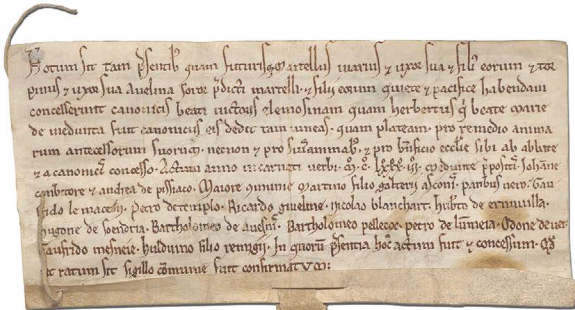 Notum sit tam p̄sentib; quam futuris q̄ martellus uarius ⁊ uxor sua ⁊ filii eorum ⁊ tor
pinus ⁊ uxor sua Auelina soror p̄dicti martelli ⁊ filii eorum quiete ⁊ pacifice habendam
concesserunt canonicis beati uictoris elemosinam quam herbertus q̄ beate marie
de medunta fuit canonicus eis dedit tam uineas quam plateam pro remedio anima
rum antecessorum suorum necnon ⁊ pro suis animab; ⁊ pro b̄nficio ecclie sibi ab abbate
⁊ a canonicis concesso Actum anno incarnati uerbi m̊ c̊ lxxx iii medunte p̄positis Johane
⁊ andrea de pissiaco Maiore martino filio galterii paribus uero
le petro de templo Ricardo nicolao blanchart hub̄to de
hugone de Bartholomeo de Bartholomeo petro de Odone de
Gaufrido hilduino filio In quorum p̄sentia hoc actum fuit ⁊ concessum
ut ratum sit sigillo cōmunie fuit confirmatum